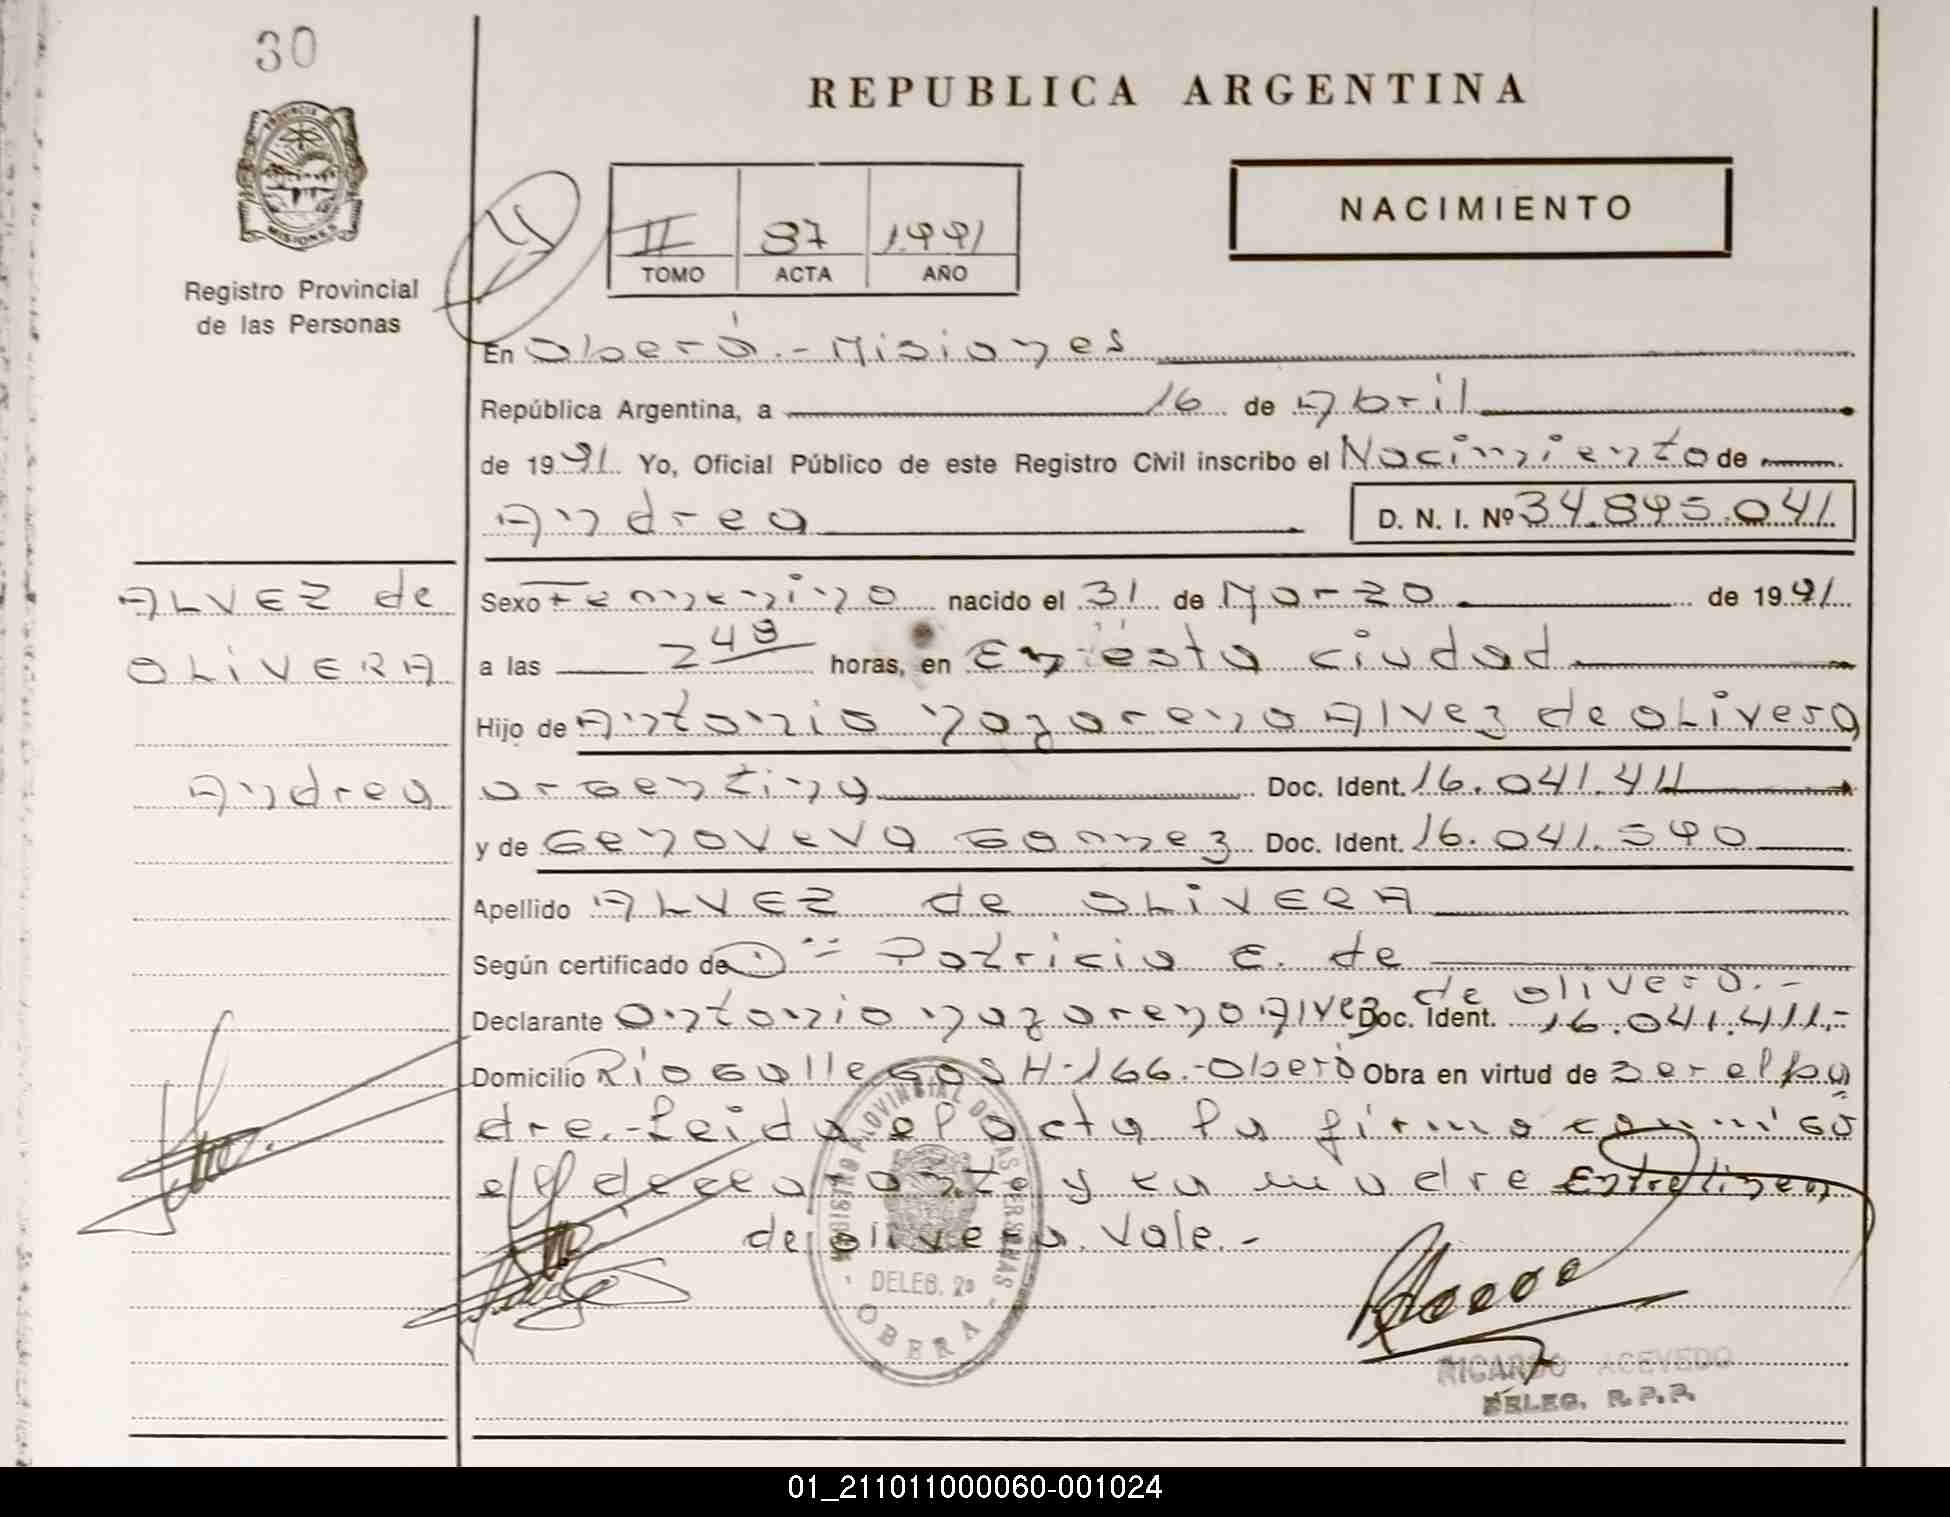 30
REPUBLICA ARGENTINA
PROVINCIA DE
MISIONES
Registro Provincial
de las Personas
II 97 1991
TOMO ACTA AÑO
NACIMIENTO
En Oberá.- Misiones
República Argentina, a 16 de Abril
de 1991 Yo, Oficial Público de este Registro Civil inscribo el Nacimiento de
Andrea D. N. I. Nº 34.895.041
ALVEZ de
OLIVERA
Andrea
Sexo Femenino nacido el 31 de Marzo de 1991
a las 2 48 horas, en En esta ciudad
Hijo de Antonio Nazareno Alvez de Olivera
argentina Doc. Ident. 16.041.411
y de Genoveva Gomez Doc. Ident. 16.041.590
Apellido ALVEZ de OLIVERA
Según certificado de Patricia E. de
de olivera.-
Declarante Antonio Nazareno Alvez Doc. Ident. 16.041.411.-
Domicilio Rio Gallegos H-166.-Oberá Obra en virtud de ser el pa
dre.-Leida el acta la firma conmigo
el declarante y su madre Entrelinea
de olivera. Vale.-
REGISTRO PROVINCIAL DE LAS PERSONAS
DELEG. 2a
OBERA
RICARDO ACEVEDO
DELEG. R.P.P.
01_211011000060-001024